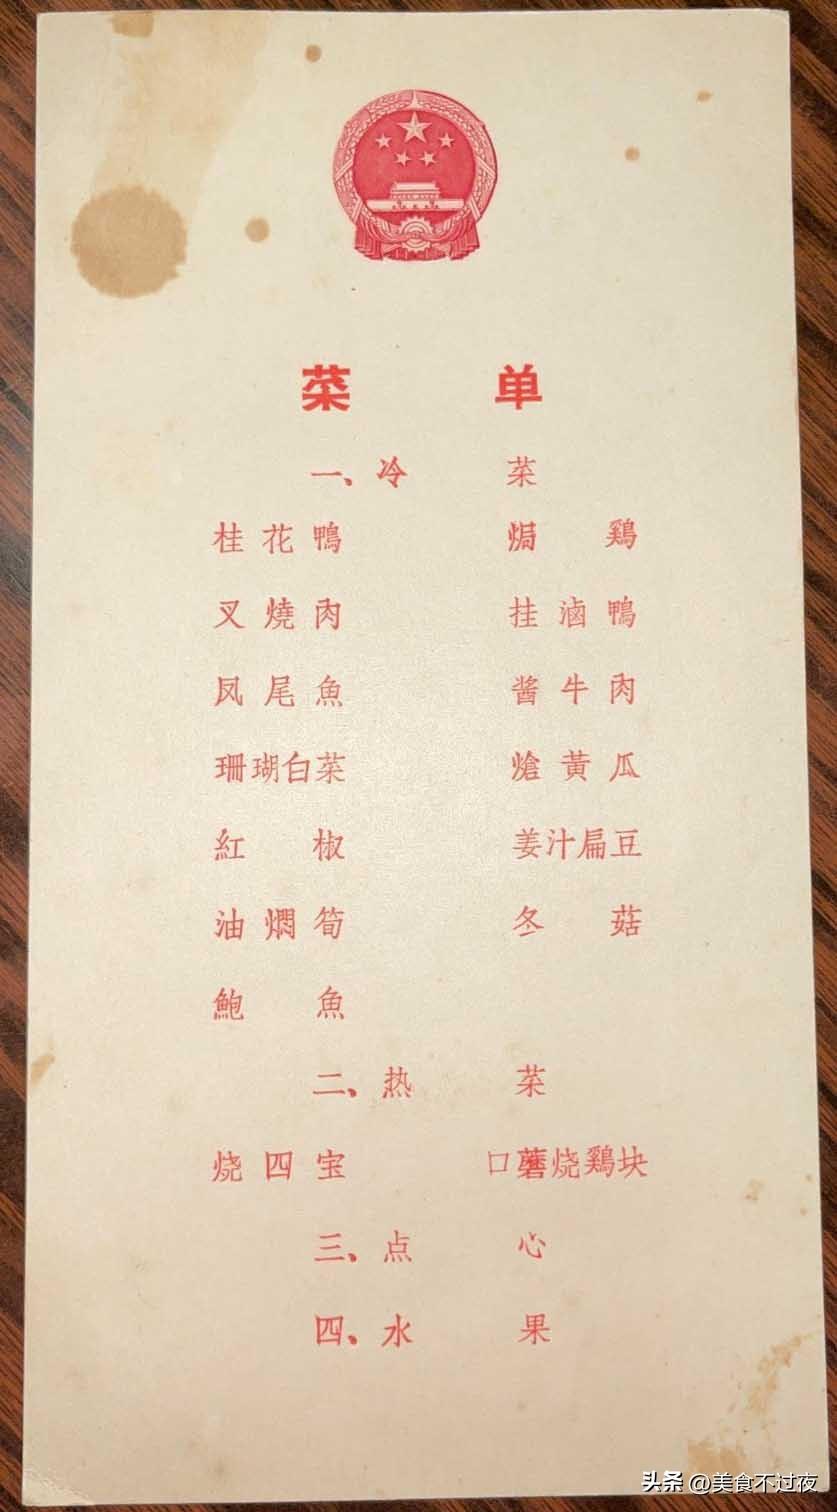 菜 单
一、冷 菜
桂花鴨 焗 鷄
叉燒肉 挂滷鴨
凤尾魚 酱牛肉
珊瑚白菜 熗黃瓜
紅 椒 姜汁扁豆
油燜筍 冬 菇
鮑 魚
二、热 菜
烧四宝 口蘑烧鷄块
三、点 心
四、水 果
头条 @美食不过夜